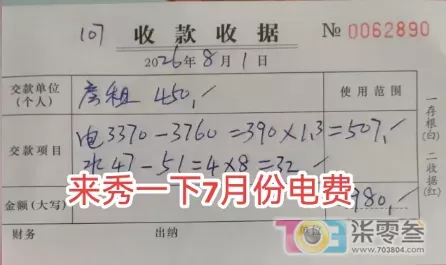 107 收款收据 № 0062890
2026年8月1日
交款单位(个人) 房租 450,- 使用范围
交款项目 电3370-3760=390×1.3=507,-
水47-51=4×8=32,-
来秀一下7月份电费
金额(大写) 980,-
财务 出纳
一存根(白) 二收据(红)
703 柒零叁
703804.COM